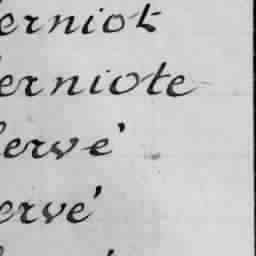 erniot
erniote
ervé
ervé